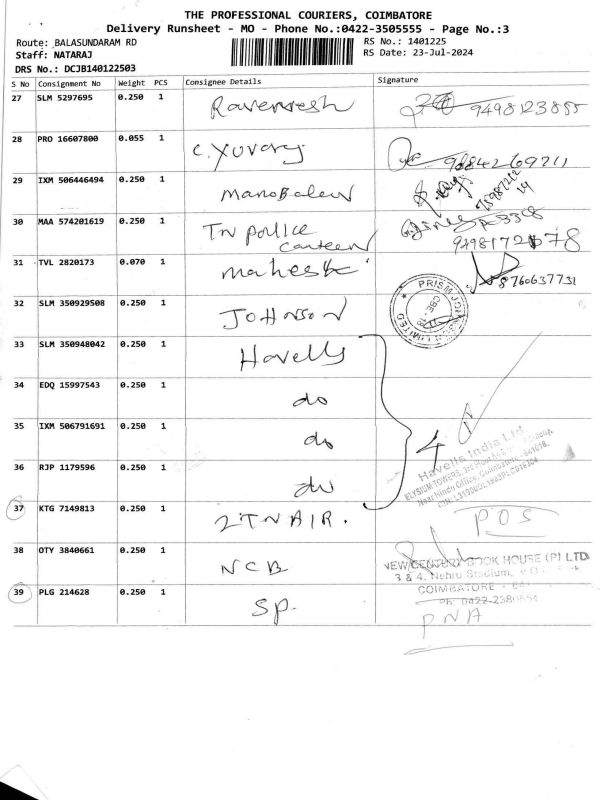 THE PROFESSIONAL COURIERS, COIMBATORE
Delivery Runsheet - MO - Phone No.:0422-3505555 - Page No.:3
Route: BALASUNDARAM RD
RS No.: 1401225
Staff: NATARAJ
RS Date: 23-Jul-2024
DRS No.: DCJB140122503
S No Consignment No Weight PCS Consignee Details Signature
27 SLM 5297695 0.250 1 9498123855
28 PRO 16607800 0.055 1 C. Yuvaraj
29 IXM 506446494 0.250 1
30 MAA 574201619 0.250 1 TN police canteen
31 TVL 2820173 0.070 1 Mahesh 8760637731
32 SLM 350929508 0.250 1 JOHNSON
33 SLM 350948042 0.250 1 Havells
34 EDQ 15997543 0.250 1 do
35 IXM 506791691 0.250 1 do 4
Havells India Ltd.
36 RJP 1179596 0.250 1 do
37 KTG 7149813 0.250 1 2TNAIR. POS
38 OTY 3840661 0.250 1 NCB
NEW CENTURY BOOK HOUSE (P) LTD
3 & 4, Nehru Stadium,
39 PLG 214628 0.250 1 SP.
COIMBATORE
PNA